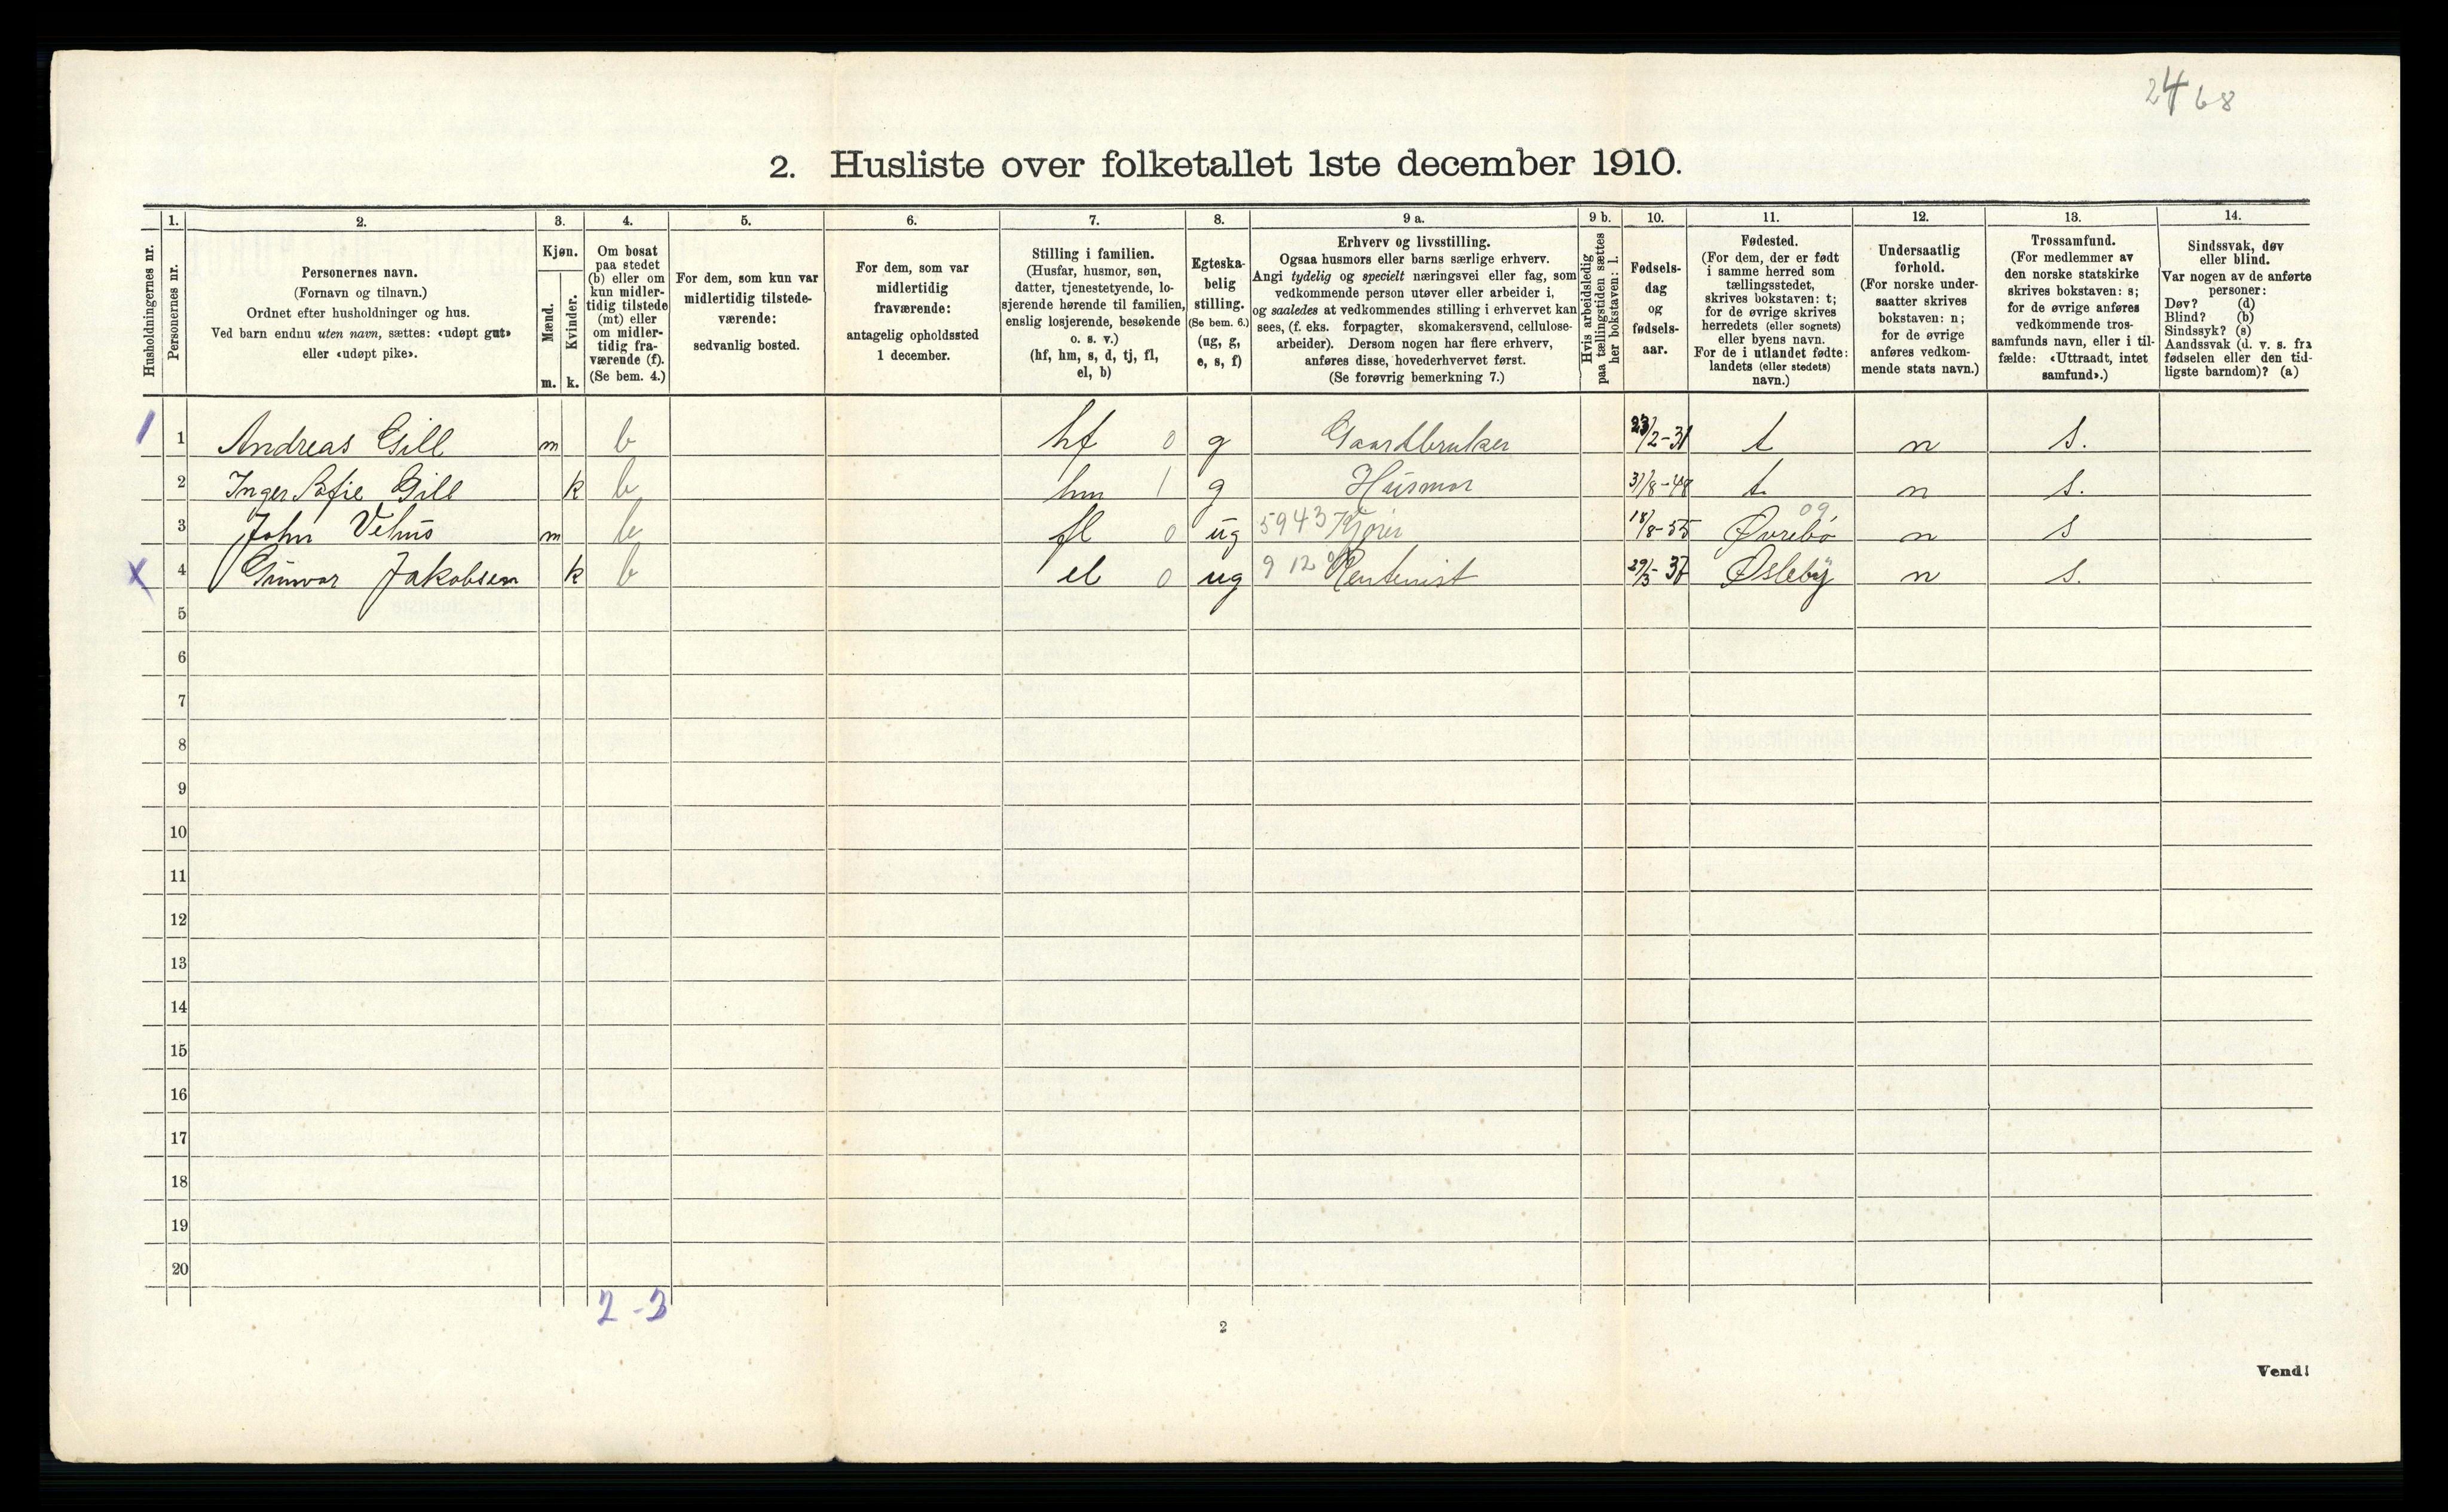 24 68
2. Husliste over folketallet 1ste december 1910.
1. 2. 3. 4. 5. 6. 7. 8. 9 a. 9 b. 10. 11. 12. 13. 14.
Husholdningernes nr.
Personernes nr.
Personernes navn.
(Fornavn og tilnavn.)
Ordnet efter husholdninger og hus.
Ved barn endnu uten navn, sættes: «udøpt gut»
eller «udøpt pike».
Kjøn.
Mænd.
Kvinder.
m. k.
Om bosat
paa stedet
(b) eller om
kun midler-
tidig tilstede
(mt) eller
om midler-
tidig fra-
værende (f).
(Se bem. 4.)
For dem, som kun var
midlertidig tilstede-
værende:
sedvanlig bosted.
For dem, som var
midlertidig
fraværende:
antagelig opholdssted
1 december.
Stilling i familien.
(Husfar, husmor, søn,
datter, tjenestetyende, lo-
sjerende hørende til familien,
enslig losjerende, besøkende
o. s. v.)
(hf, hm, s, d, tj, fl,
el, b)
Egteska-
belig
stilling.
(Se bem. 6.)
(ug, g,
e, s, f)
Erhverv og livsstilling.
Ogsaa husmors eller barns særlige erhverv.
Angi tydelig og specielt næringsvei eller fag, som
vedkommende person utøver eller arbeider i,
og saaledes at vedkommendes stilling i erhvervet kan
sees, (f. eks. forpagter, skomakersvend, cellulose-
arbeider). Dersom nogen har flere erhverv,
anføres disse, hovederhvervet først.
(Se forøvrig bemerkning 7.)
Hvis arbeidsledig
paa tællingstiden sættes
her bokstaven: l.
Fødsels-
dag
og
fødsels-
aar.
Fødested.
(For dem, der er født
i samme herred som
tællingsstedet,
skrives bokstaven: t;
for de øvrige skrives
herredets (eller sognets)
eller byens navn.
For de i utlandet fødte:
landets (eller stedets)
navn.)
Undersaatlig
forhold.
(For norske under-
saatter skrives
bokstaven: n;
for de øvrige
anføres vedkom-
mende stats navn.)
Trossamfund.
(For medlemmer av
den norske statskirke
skrives bokstaven: s;
for de øvrige anføres
vedkommende tros-
samfunds navn, eller i til-
fælde: «Uttraadt, intet
samfund».)
Sindssvak, døv
eller blind.
Var nogen av de anførte
personer:
Døv? (d)
Blind? (b)
Sindssyk? (s)
Aandssvak (d. v. s. fra
fødselen eller den tid-
ligste barndom)? (a)
1 1 Andreas Gill m b hf 0 g Gaardbruker 23/2-31 t n s.
2 Inger Sofie Gill k b hm 1 g Husmor 31/8-48 t. n s.
3 John Vehus m b fl 0 ug 5943 18/8-55 Øvrebø 09 n s
x 4 Gunvor Jakobsen k b el 0 ug 9 12 Rentenist 29/3-37 Øsleby n s.
5
6
7
8
9
10
11
12
13
14
15
16
17
18
19
20
2-3
2
Vend!